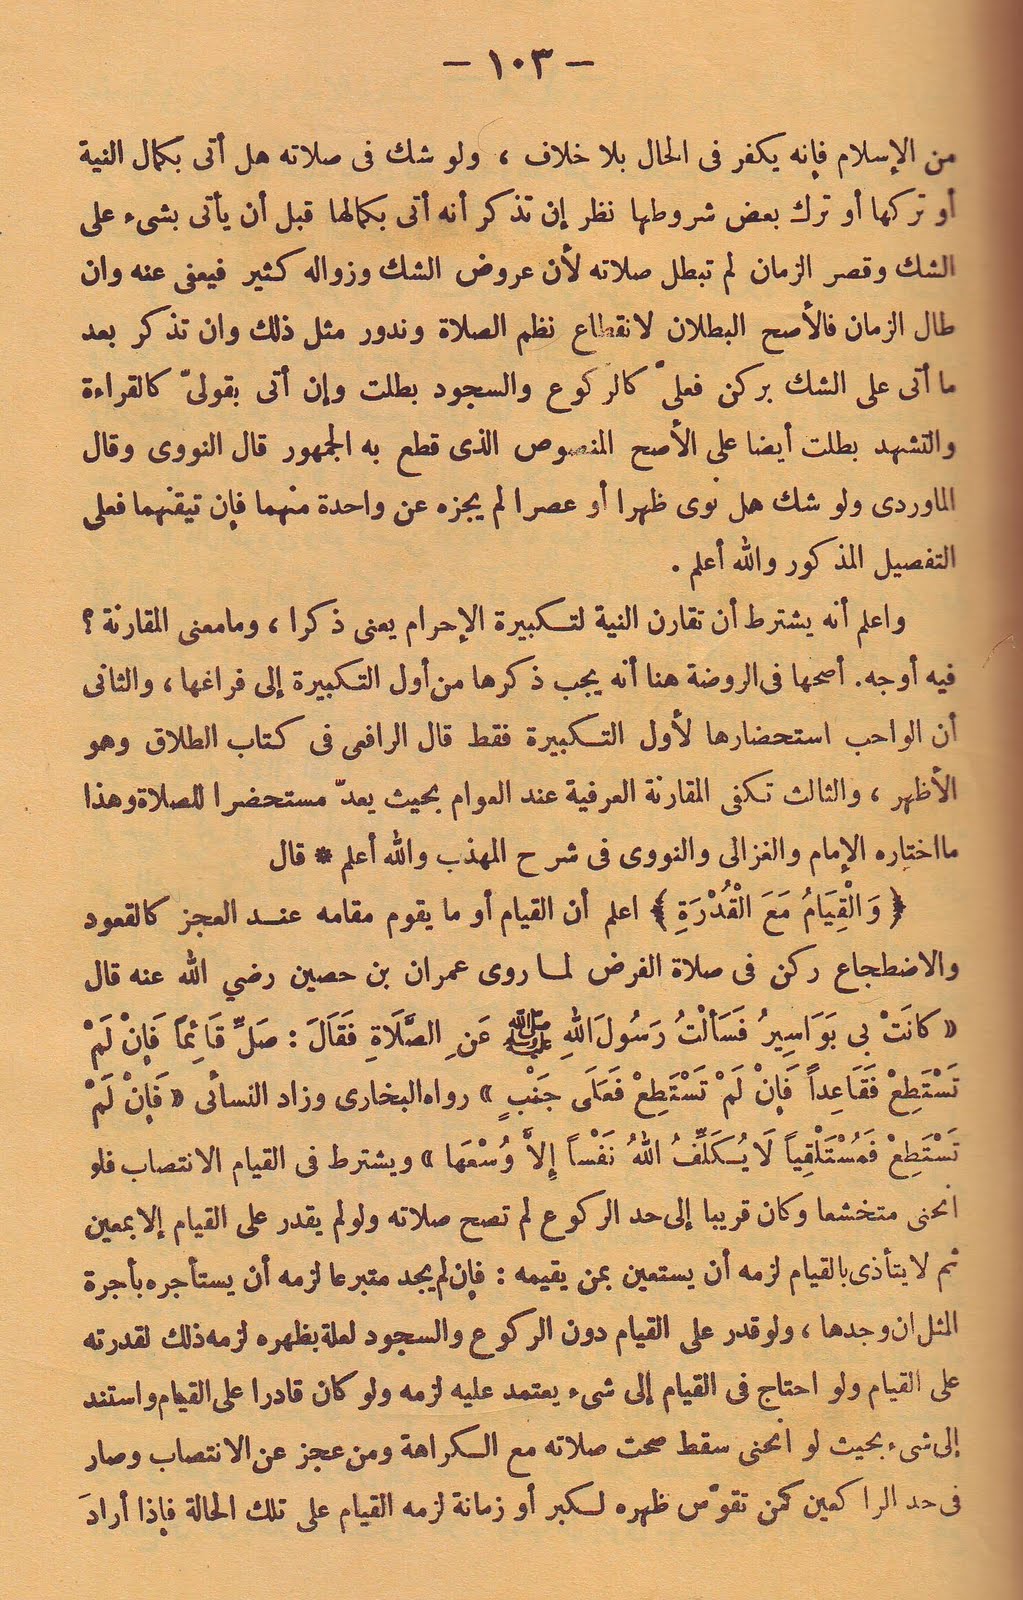 — ١٠٣ —
من الإسلام فإنه يكفر فى الحال بلا خلاف ، ولو شك فى صلاته هل أتى بكمال النية
أو تركها أو ترك بعض شروطها نظر إن تذكر أنه أتى بكمالها قبل أن يأتى بشىء على
الشك وقصر الزمان لم تبطل صلاته لأن عروض الشك وزواله كثير فيعفى عنه وان
طال الزمان فالأصح البطلان لانقطاع نظم الصلاة وندور مثل ذلك وان تذكر بعد
ما أتى على الشك بركن فعلىّ كالركوع والسجود بطلت وإن أتى بقولىّ كالقراءة
والتشهد بطلت أيضا على الأصح المنصوص الذى قطع به الجمهور قال النووى وقال
الماوردى ولو شك هل نوى ظهرا أو عصرا لم يجزه عن واحدة منهما فإن تيقنهما فعلى
التفصيل المذكور والله أعلم .
واعلم أنه يشترط أن تقارن النية لتكبيرة الإحرام يعنى ذكرا ، ومامعنى المقارنة ؟
فيه أوجه . أصحها فى الروضة هنا أنه يجب ذكرها من أول التكبيرة إلى فراغها ، والثانى
أن الواحب استحضارها لأول التكبيرة فقط قال الرافعى فى كتاب الطلاق وهو
الأظهر ، والثالث تكفى المقارنة العرفية عند العوام بحيث يعدّ مستحضرا للصلاة وهذا
مااختاره الإمام والغزالى والنووى فى شرح المهذب والله أعلم * قال
﴿ وَالْقِيَامُ مَعَ الْقُدْرَةِ ﴾ اعلم أن القيام أو ما يقوم مقامه عند العجز كالقعود
والاضطجاع ركن فى صلاة الفرض لما روى عمران بن حصين رضي الله عنه قال
« كَانَتْ بِي بَوَاسِيرُ فَسَأَلْتُ رَسُولَ اللهِ ﷺ عَنِ الصَّلَاةِ فَقَالَ : صَلِّ قَائِمًا فَإِنْ لَمْ
تَسْتَطِعْ فَقَاعِداً فَإِنْ لَمْ تَسْتَطِعْ فَعَلَى جَنْبٍ » رواه البخارى وزاد النسائى « فَإِنْ لَمْ
تَسْتَطِعْ فَمُسْتَلْقِياً لَا يُكَلِّفُ اللهُ نَفْساً إِلاَّ وُسْعَهَا » ويشترط فى القيام الانتصاب فلو
انحنى متخشعا وكان قريبا إلى حد الركوع لم تصح صلاته ولو لم يقدر على القيام إلا بمعين
ثم لا يتأذى بالقيام لزمه أن يستعين بمن يقيمه : فإن لم يجد متبرعا لزمه أن يستأجره بأجرة
المثل ان وجدها ، ولو قدر على القيام دون الركوع والسجود لعلة بظهره لزمه ذلك لقدرته
على القيام ولو احتاج فى القيام إلى شىء يعتمد عليه لزمه ولو كان قادرا على القيام واستند
إلى شىء بحيث لو انحنى سقط صحت صلاته مع الكراهة ومن عجز عن الانتصاب وصار
فى حد الراكعين كمن تقوّس ظهره لكبر أو زمانة لزمه القيام على تلك الحالة فإذا أرادَ